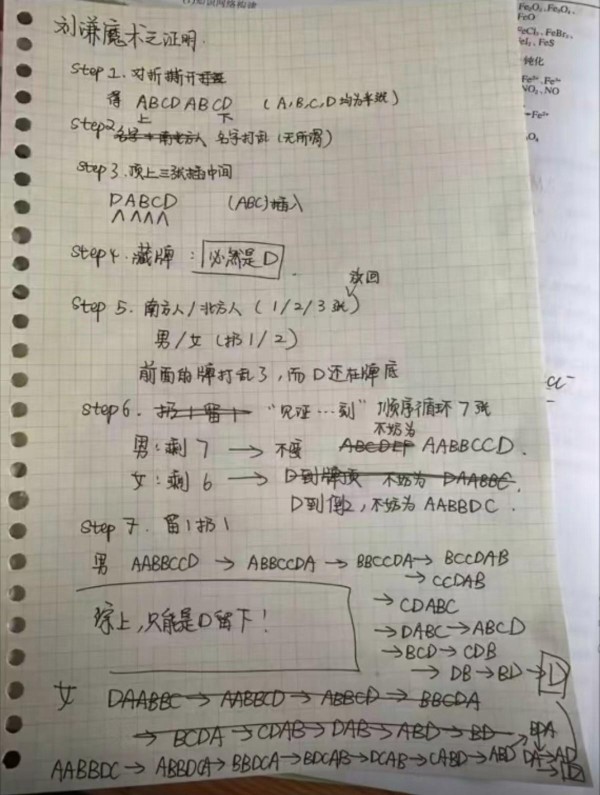 刘谦魔术之证明.
Fe₂O₃、Fe₃O₄、
FeO
FeCl₂、FeBr₂、
FeI₂、FeS
钝化
Step 1. 对折撕开
得 ABCD ABCD (A,B,C,D均为半纸)
上 下
Step2. 名字打乱 (无所谓)
Step 3. 顶上三张插中间
DABCD (ABC)插入
Step 4. 藏牌: 必然是D.
放回
Step 5. 南方人/北方人 (1/2/3张)
男/女 (扔1/2)
前面的牌打乱了,而D还在牌底
step 6. 扔1留1 "见证…刻" 顺序循环7张
不妨为
男:剩7 → 不变 ABCDEF AABBCCD.
女:剩6 → D到牌顶 不妨为 DAABBC.
D到倒2,不妨为AABBDC.
Step 7. 留1扔1
男 AABBCCD → ABBCCDA → BBCCDA → BCCDAB
→ CCDAB
→ CDABC
→ DABC → ABCD
→ BCD → CDB
→ DB → BD → D
综上,只能是D留下!
女 DAABBC → AABBCD → ABBCD → BBCDA
→ BCDA → CDAB → DAB → ABD → BD
BDA
AABBDC → ABBDCA → BBDCA → BDCAB → DCAB → CABD → ABD DA → AD
→ D